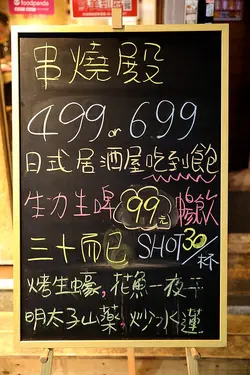 foodpanda
串燒殿
499 or 699
日式居酒屋吃到飽
生力生啤 99元 暢飲
三十而已 SHOT 30/杯
烤生蠔,花魚一夜干
明太子山藥,炒水蓮